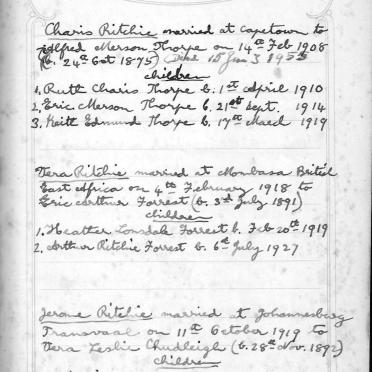 Charis Ritchie married at Capetown to
Alfred Merson Thorpe on 14th Feb 1908
(b. 24th Oct 1875) Died 15 Jan
children
1. Ruth Charis Thorpe b. 1st April 1910
2. Eric Merson Thorpe b. 21st Sept. 1914
3. Keith Edmund Thorpe b. 17th March 1919
Vera Ritchie married at Mombasa British
East Africa on 4th February 1918 to
Eric Arthur Forrest (b. 3rd July 1891)
children
1. Heather Lonsdale Forrest b. Feb 20th 1919
2. Arthur Ritchie Forrest b. 6th July 1927
Jerome Ritchie married at Johannesburg
Transvaal on 11th October 1919 to
Vera Leslie Chudleigh (b. 28th Nov. 1892)
children